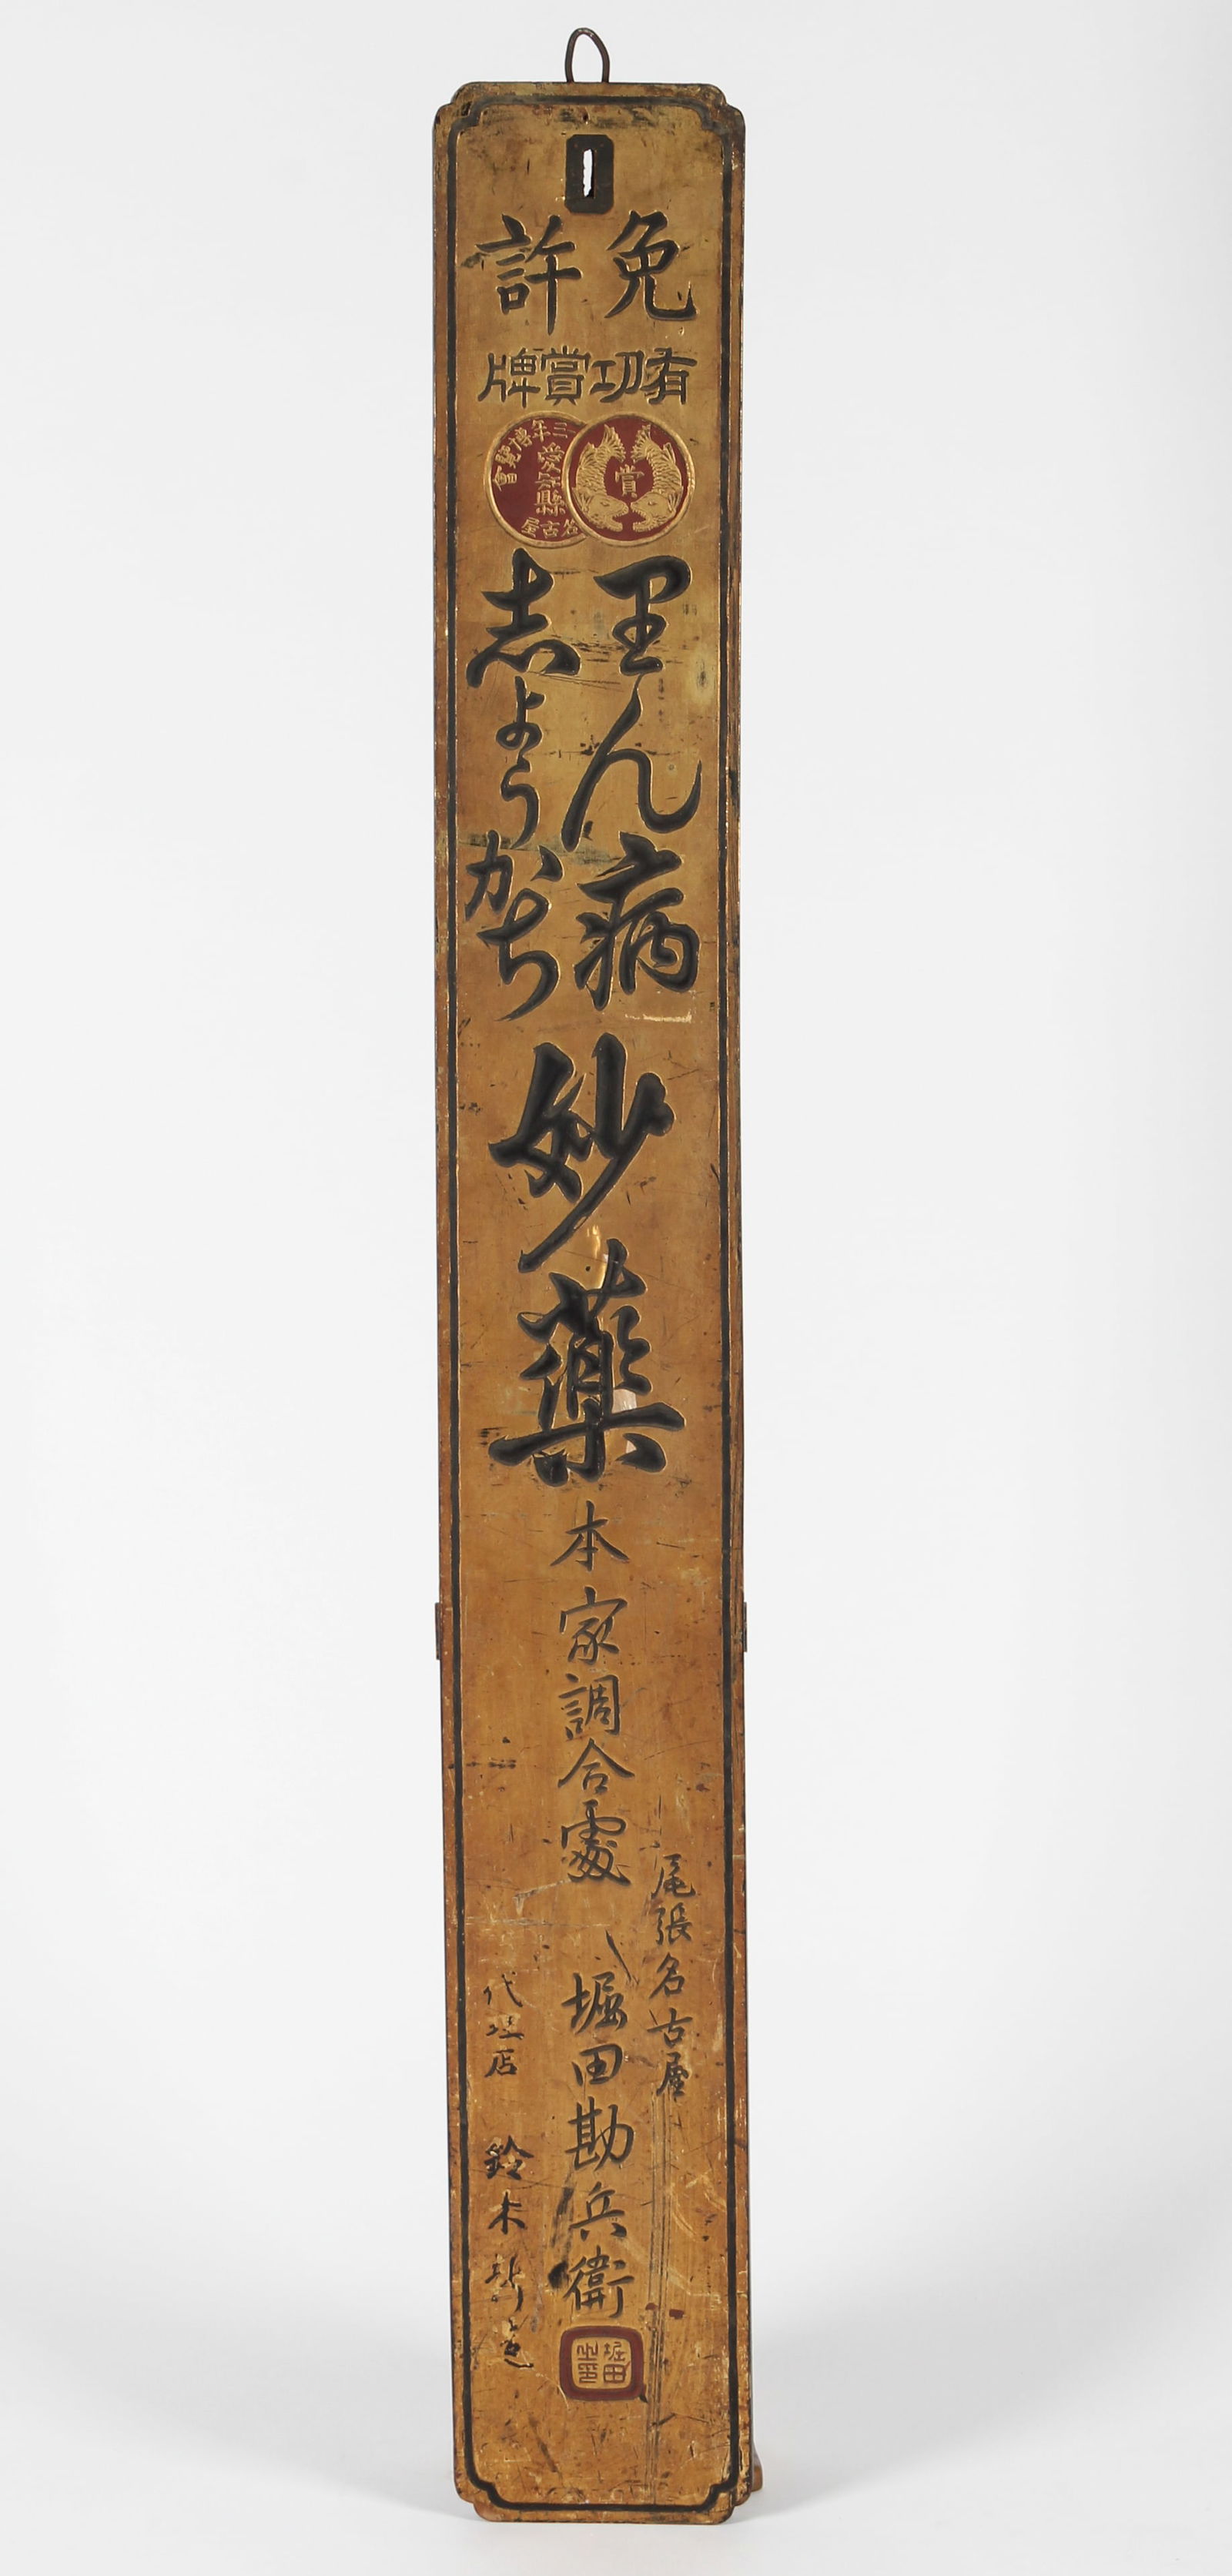 免許
有功賞牌
賞
三年博覽會
愛知縣
名古屋
里ん病
志ようかち
妙藥
本家調合處
尾張名古屋
堀田勘兵衛
堀田之印
代理店
鈴木新